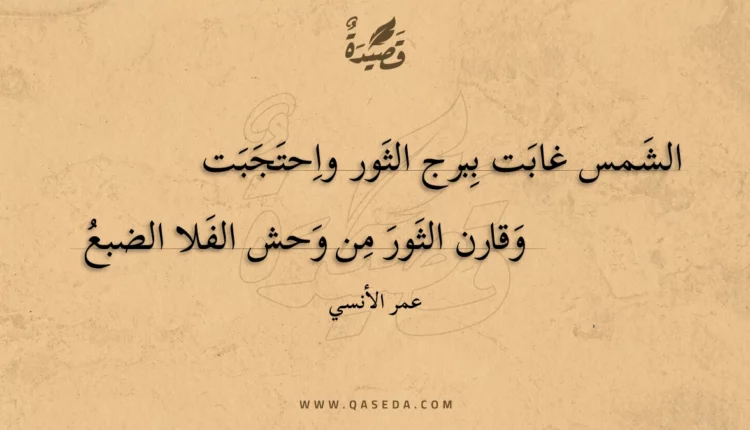 قَصِيْدَةٌ
الشَمس غابَت بِبرج الثَور واِحتَجَبَت
وَقارن الثَورَ مِن وَحش الفَلا الضبعُ
عمر الأنسي
WWW.QASEDA.COM